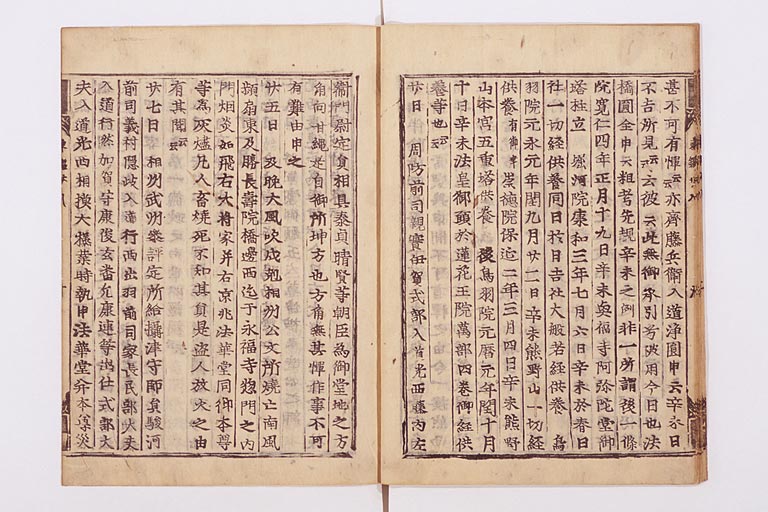 甚不可有憚云云亦齊藤兵衛入道淨圓申云辛未日
不吉所見云云云彼云此無御承引労被用今日也法
橋圓全申云粗考先規辛未之例非一所謂後一條
院寛仁四年正月十九日辛未興福寺阿弥陀堂御
塔柱立 堀河院康和三年七月六日辛未於春日
社一切経供養同日於日吉社大般若経供養 鳥
羽院元永元年閏九月廿二日辛未熊野山一切経
供養有御幸 崇徳院保延二年三月四日辛未熊野
山本宮五重塔供養 後鳥羽院元暦元年閏十月
十日辛未法皇御願於蓮花王院萬部四巻御経供
養等也云云
廿日 周防前司親實伊賀式部入道光西藤内左
衛門尉定員相具泰貞晴賢等朝臣為御堂地之方
角向甘縄是自御所坤方也方角無其憚作事不可
有難由申之
廿五日 及晩大風吹戌尅相洲公文所燒亡南風
頻扇東及勝長壽院橋邊西迄于永福寺惣門之内
門烟炎如飛右大将家并右京兆法華堂同御本尊
等為灰燼凡人畜燒死不知其員是盗人放火之由
有其聞云云
廿七日 相洲武洲參評定所給攝津守師員駿河
前司義村隠岐入道行西出羽前司家長民部大夫
入道行然加賀守康俊玄蕃允康連等出仕式部大
夫入道光西相模大掾業時執申法華堂并本尊災